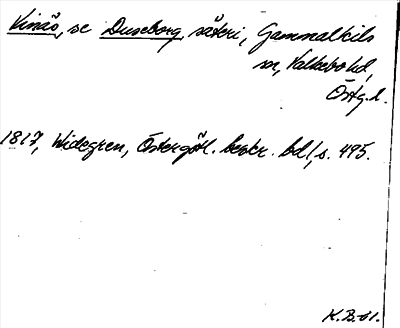 Vinäs, se Duseborg, säteri, Gammalkils
sn, Valkebo hd,
Östg. l.
1817, Widegren, Östergötl. beskr. bd 1, s. 495.
K.B-61.